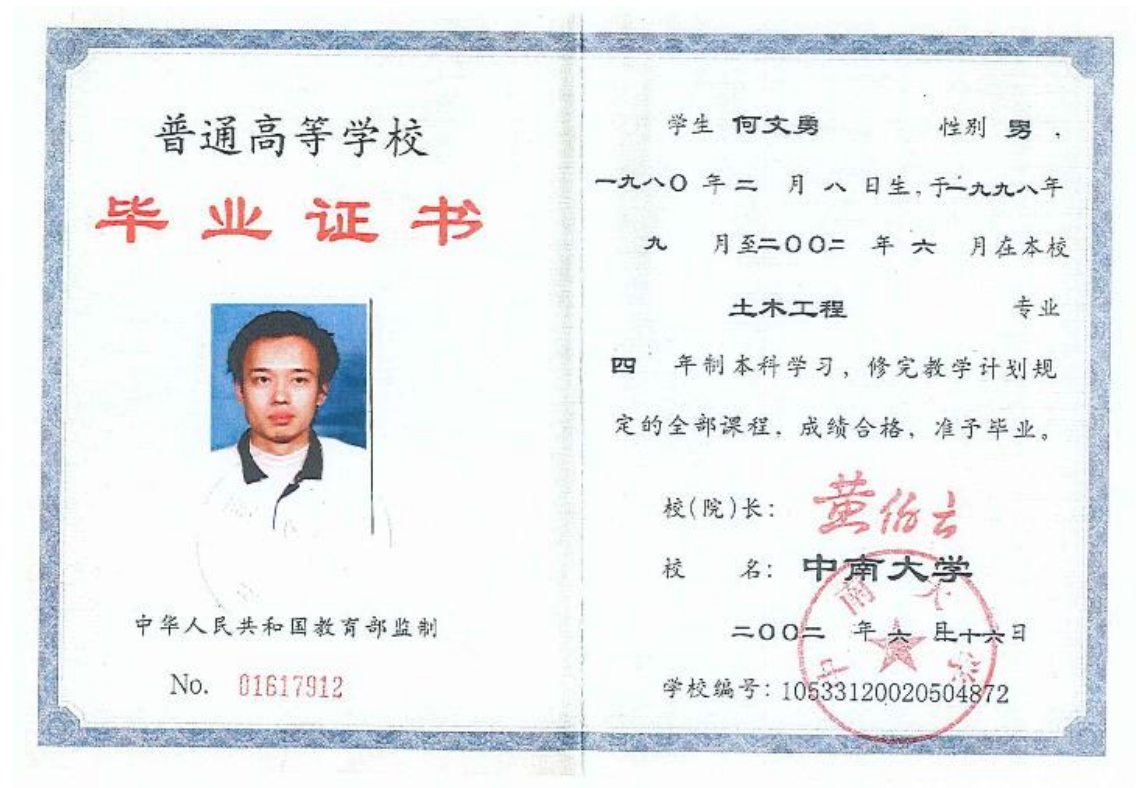 普通高等学校
毕业证书
中华人民共和国教育部监制
No. 01617912
学生 何文勇 性别 男 ,
一九八〇 年 二 月 八 日生, 于一九九八年
九 月至二〇〇二 年 六 月在本校
土木工程 专业
四 年制本科学习, 修完教学计划规
定的全部课程, 成绩合格, 准予毕业。
校(院)长: 黄伯云
校 名: 中南大学
二〇〇二 年 六 月十六日
学校编号: 10533120020504872
中南大学